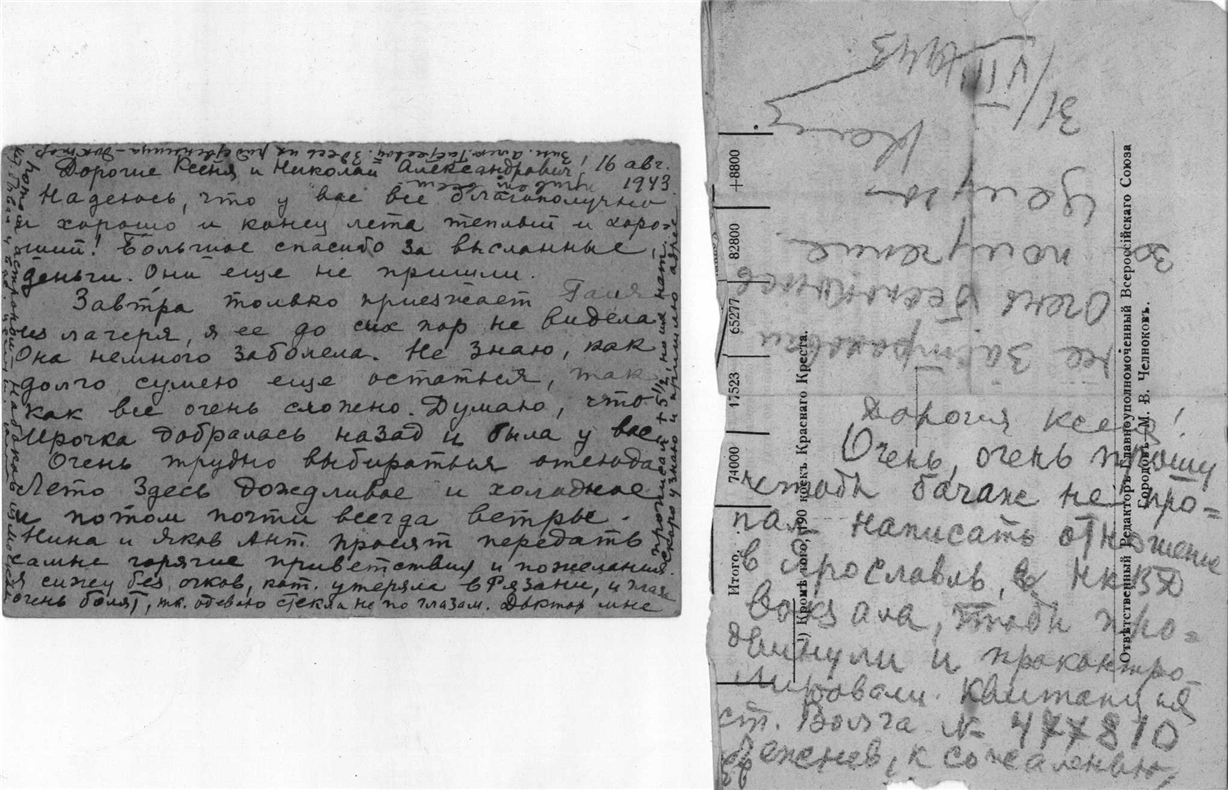 Дорогие Ксеня и Николай Александрович! 16 авг.
1943
Надеюсь, что у вас все благополучно
и хорошо и конец лета теплый и хоро-
ший! Большое спасибо за высланные
деньги. Они еще не пришли.
Завтра только приезжает Галя
из лагеря, я ее до сих пор не видела.
Она немного заболела. Не знаю, как
долго сумею еще остаться, так
как все очень сложно. Думаю, что
Ирочка добралась назад и была у вас
Очень трудно выбираться отсюда
Лето здесь дождливое и холодное
и потом почти всегда ветры.
Нина и Яков Ант. просят передать
самые горячие приветствия и пожелания.
Я сижу без очков, кот. утеряла в Рязани, и глаза
очень болят, т.к. одеваю стекла не по глазам. Доктор мне
прописал + 5 1/2, но
скоро узнаю и пришлю адрес
Дорогая Ксеня!
Очень, очень прошу
чтобы багаж не про=
пал написать отношение
в Ярославль, в НКВД
вокзала, чтобы про=
двинули и проконтро-
лировали. Квитанция
ст. Волга № 477810
к сожаленью,
не застраховали
Очень беспокоюсь
за получение.
Целую
31/VIII 1943
Итого.
74000
17523
65277
82800
+8800
¹) Кромѣ того, 1190 коекъ Краснаго Креста.
Отвѣтственный Редакторъ Главноуполномоченный Всероссійскаго Союза
Городовъ М. В. Челноковъ.